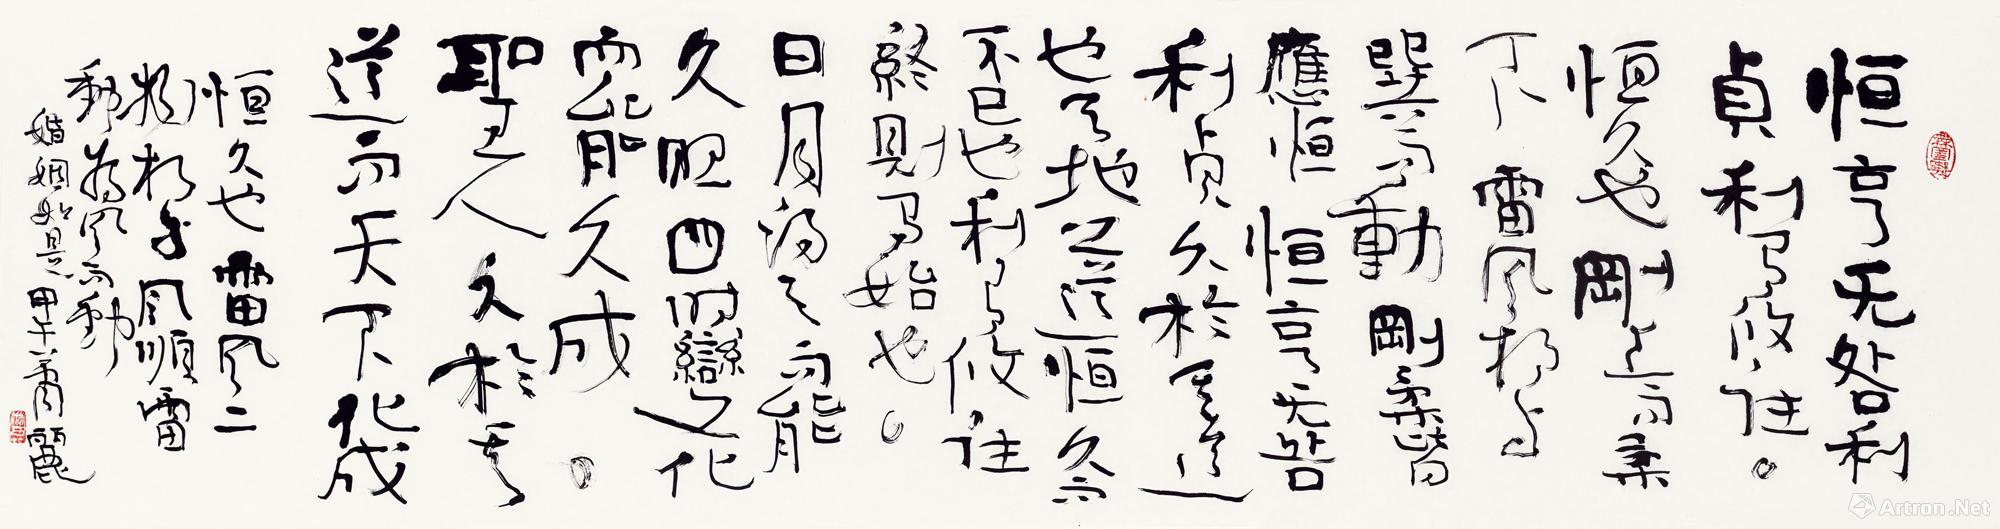 恒亨无咎利
貞利有攸往。
恒久也剛上而柔
下雷風相与
巽而動剛柔皆
應恒恒亨无咎
利貞久於其道
也天地之道恒久而
不已也利有攸往
終則有始也。
日月得天而能
久照四時變化
而能久成。
聖人久於其
道而天下化成
恒久也雷風二
物相与風順雷
動為風而動
婚姻如是甲午蕭麗
Artron.Net